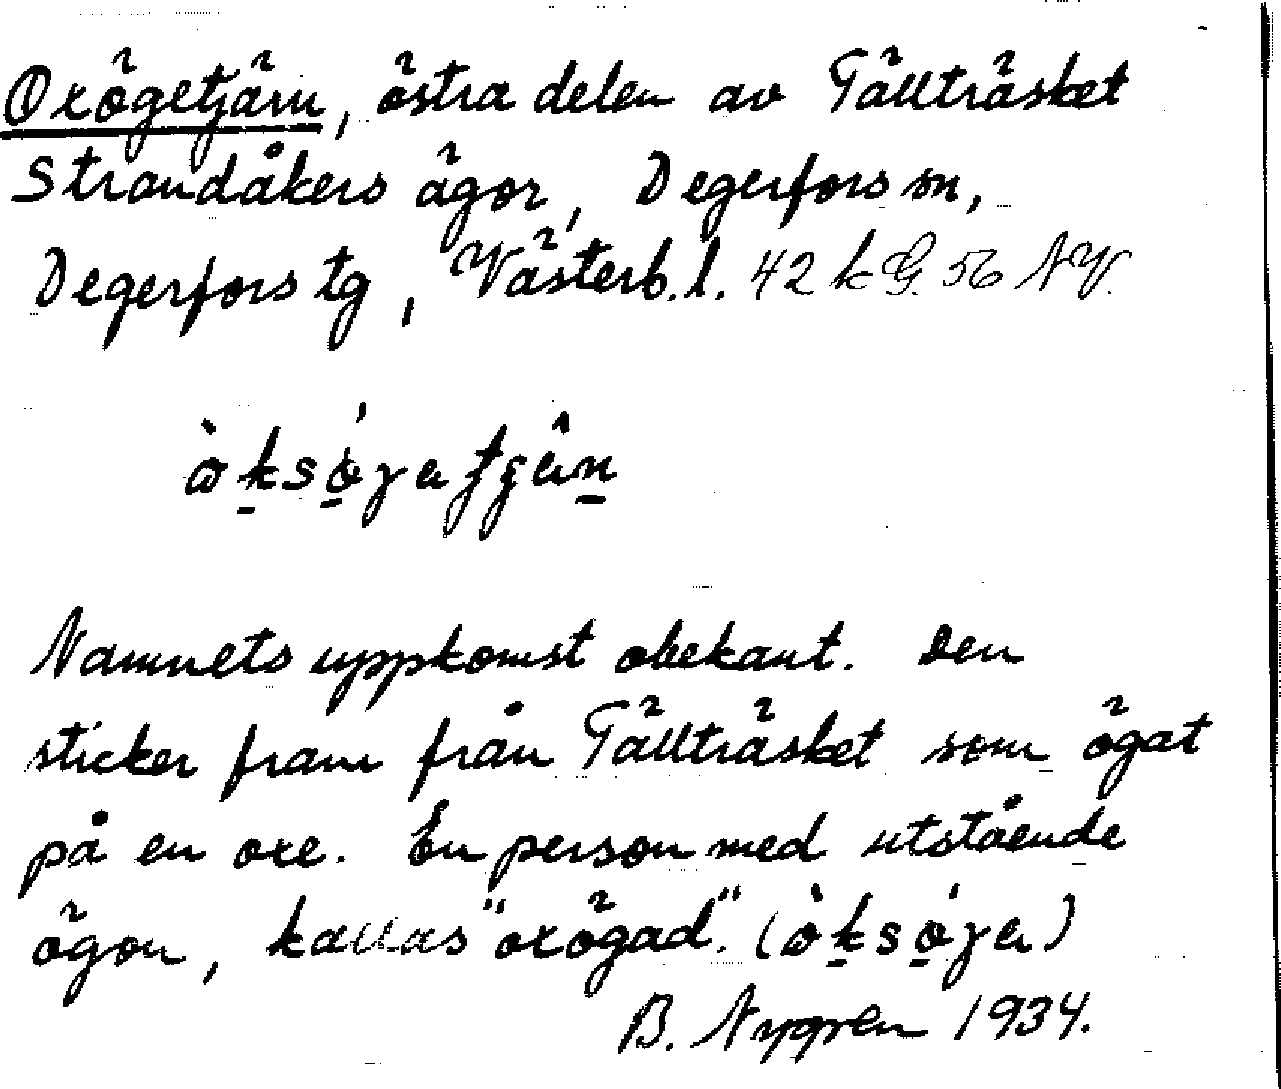 Oxögetjärn, östra delen av Tällträsket
Strandåkers ägor, Degerfors sn,
Degerfors tg, Västerb. l. 42 k G. 56 NV.
Namnets uppkomst obekant. Den
sticker fram från Tällträsket som ögat
på en oxe. En person med utstående
ögon, kallas "oxögad".
B. Nygren 1934.